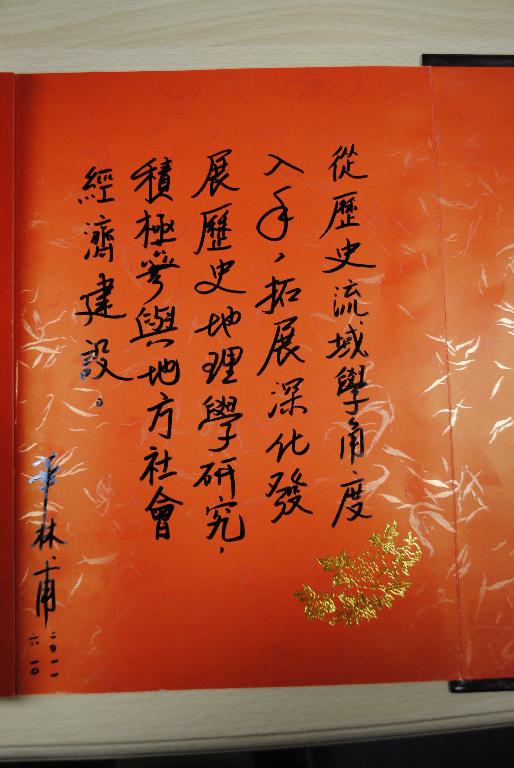 從歷史流域學角度
入手，拓展深化發
展歷史地理學研究，
積極參與地方社會
經濟建設。
辛林甫
二〇一一
六.一〇